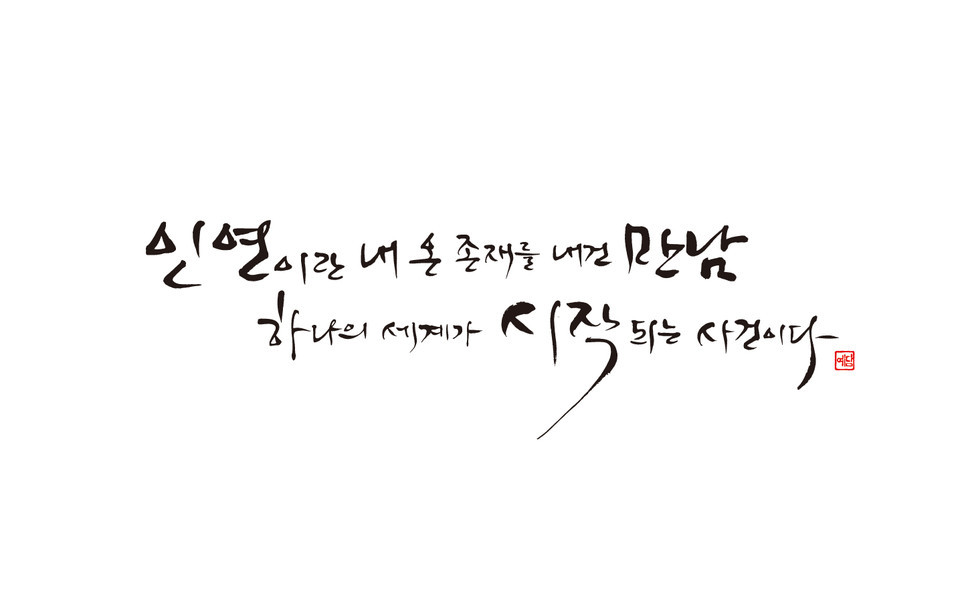 인연이란 내 온 존재를 내건 만남
하나의 세계가 시작되는 사건이다
예담